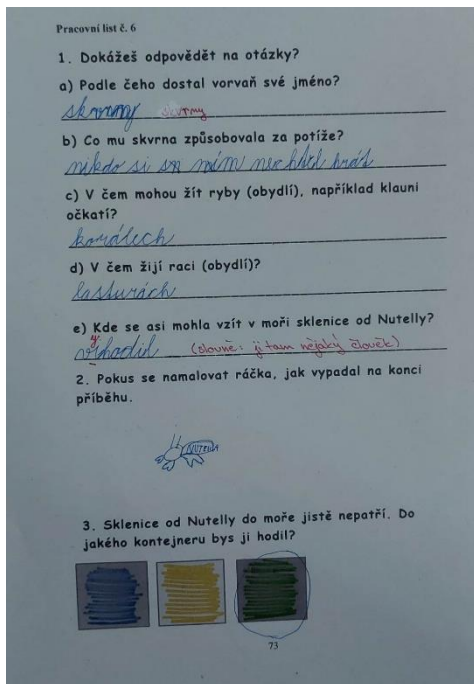 Pracovní list č. 6
1. Dokážeš odpovědět na otázky?
a) Podle čeho dostal vorvaň své jméno?
skvrny skvrny
b) Co mu skvrna způsobovala za potíže?
nikdo si s ním nechtěl hrát
c) V čem mohou žít ryby (obydlí), například klauni
očkatí?
korálech
d) V čem žijí raci (obydlí)?
lasturách
e) Kde se asi mohla vzít v moři sklenice od Nutelly?
y
vihodil (slovně: ji tam nějaký člověk)
2. Pokus se namalovat ráčka, jak vypadal na konci
příběhu.
NUTELLA
3. Sklenice od Nutelly do moře jistě nepatří. Do
jakého kontejneru bys ji hodil?
73